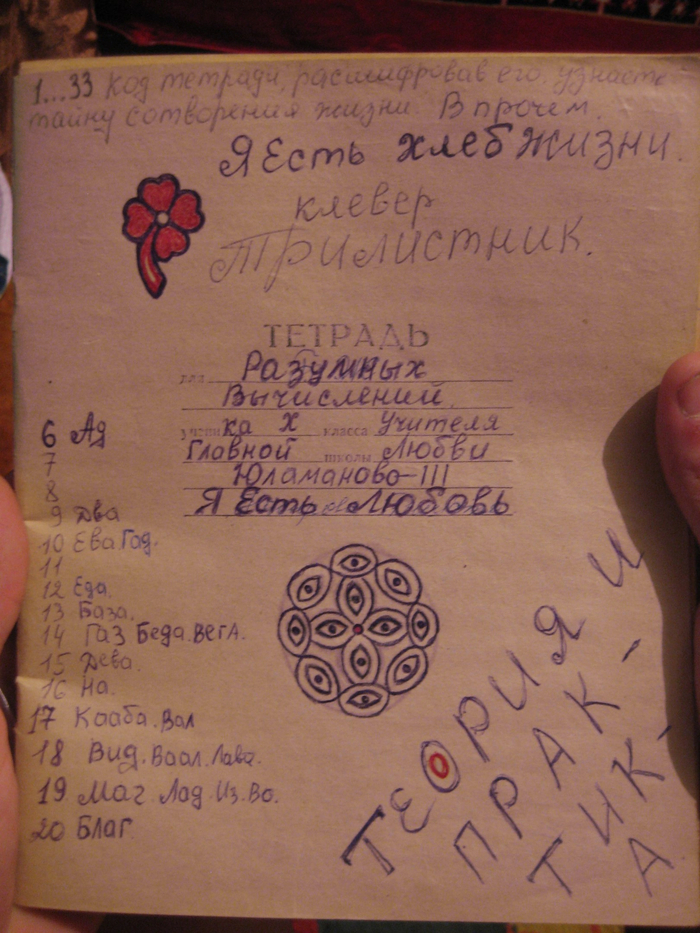 1...33 Код тетради, расшифровав его, узнаете
тайну сотворения жизни. В прочем.
Я Есть хлеб жизни.
клевер
Трилистник.
ТЕТРАДЬ
для Разумных
Вычислений.
учени ка X класса Учителя
Главной школы Любви
Юламаново-III
Я Есть Любовь
6 Ад
7
8
9 Два
10 Ева Гад.
11
12 Еда.
13 База.
14 Газ Беда. Вега.
15 Дева.
16 На.
17 Кааба. Вал
18 Вид. Ваал. Лава.
19 Маг Лад. Из. Во.
20 Благ.
ТЕОРИЯ И
ПРАК-
ТИК-
А